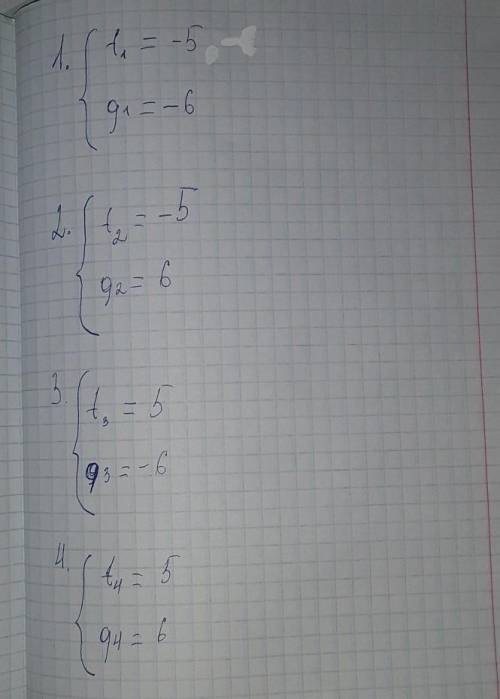 1. { t₁ = -5
g₁ = -6
2. { t₂ = -5
g₂ = 6
3. { t₃ = 5
g₃ = -6
4. { t₄ = 5
g₄ = 6